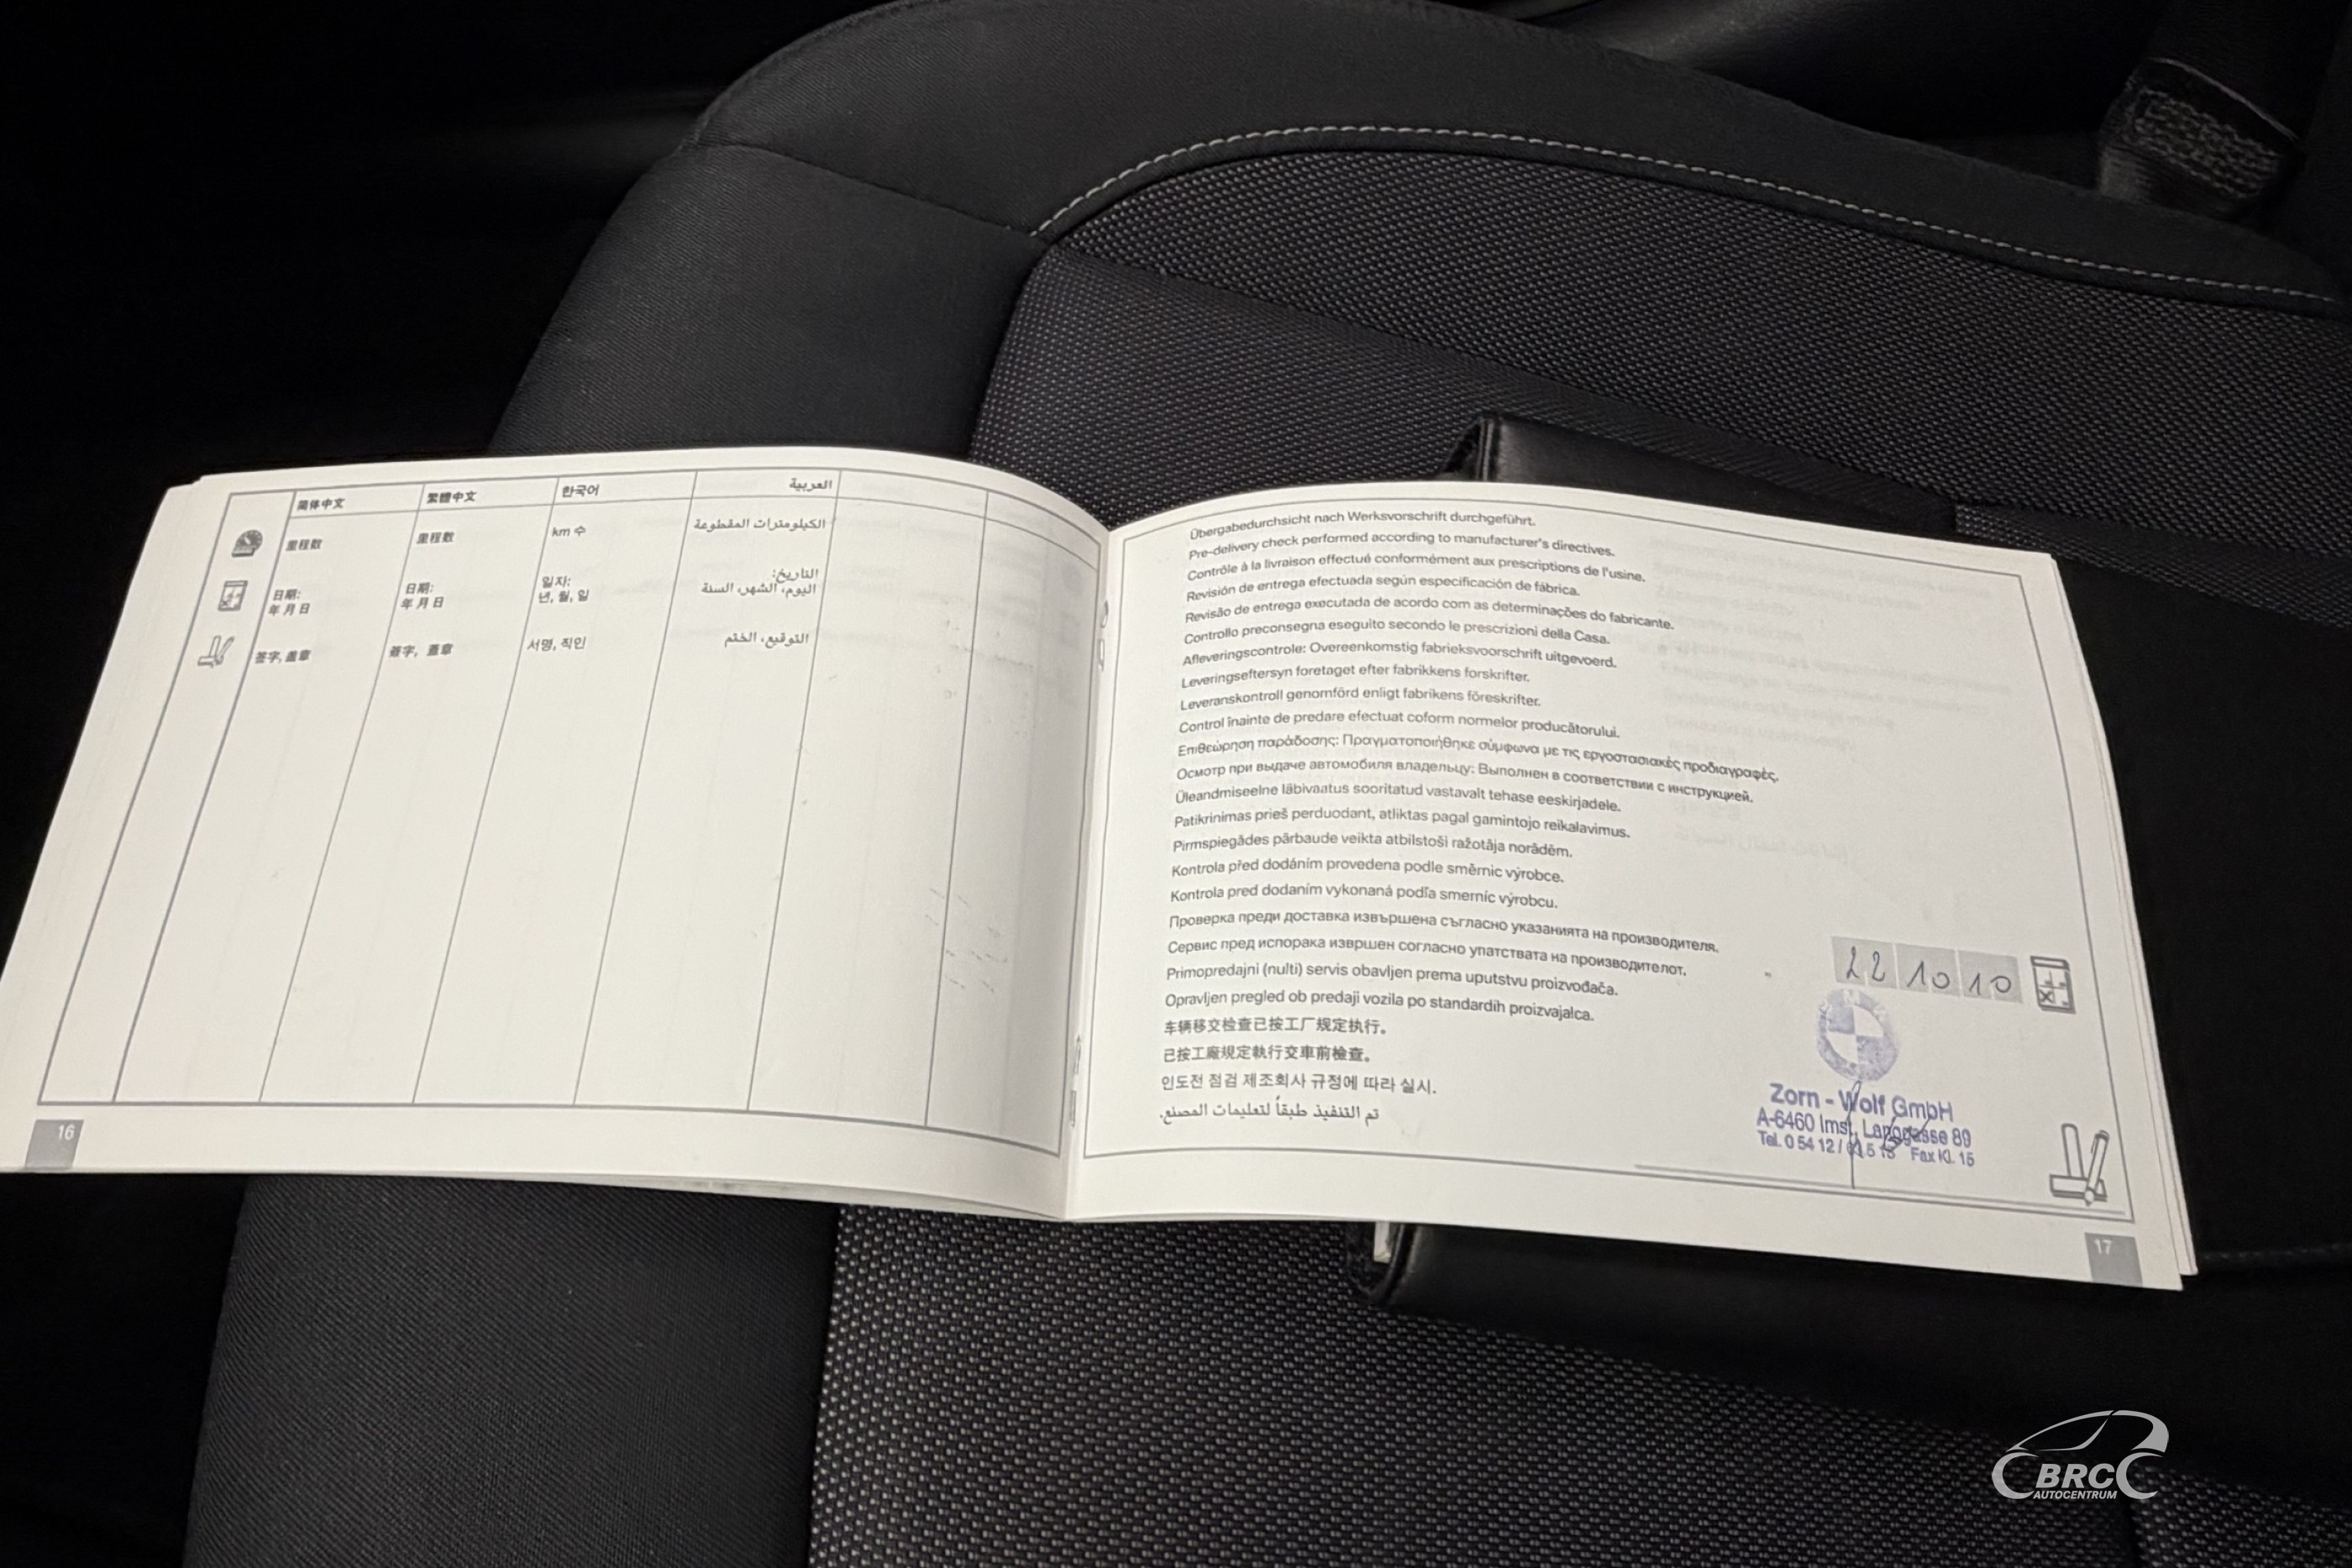 简体中文 繁體中文 한국어 العربية
里程数 里程数 km 수 الكيلومترات المقطوعة
日期: 日期: 일자: التاريخ:
年月日 年月日 년, 월, 일 اليوم، الشهر، السنة
签字, 盖章 簽字, 蓋章 서명, 직인 التوقيع، الختم
16
Übergabedurchsicht nach Werksvorschrift durchgeführt.
Pre-delivery check performed according to manufacturer's directives.
Contrôle à la livraison effectué conformément aux prescriptions de l'usine.
Revisión de entrega efectuada según especificación de fábrica.
Revisão de entrega executada de acordo com as determinações do fabricante.
Controllo preconsegna eseguito secondo le prescrizioni della Casa.
Afleveringscontrole: Overeenkomstig fabrieksvoorschrift uitgevoerd.
Leveringseftersyn foretaget efter fabrikkens forskrifter.
Leveranskontroll genomförd enligt fabrikens föreskrifter.
Control înainte de predare efectuat coform normelor producătorului.
Επιθεώρηση παράδοσης: Πραγματοποιήθηκε σύμφωνα με τις εργοστασιακές προδιαγραφές.
Осмотр при выдаче автомобиля владельцу: Выполнен в соответствии с инструкцией.
Üleandmiseelne läbivaatus sooritatud vastavalt tehase eeskirjadele.
Patikrinimas prieš perduodant, atliktas pagal gamintojo reikalavimus.
Pirmspiegādes pārbaude veikta atbilstoši ražotāja norādēm.
Kontrola před dodáním provedena podle směrnic výrobce.
Kontrola pred dodaním vykonaná podľa smerníc výrobcu.
Проверка преди доставка извършена съгласно указанията на производителя.
Сервис пред испорака извршен согласно упатствата на производителот.
Primopredajni (nulti) servis obavljen prema uputstvu proizvođača.
Opravljen pregled ob predaji vozila po standardih proizvajalca.
车辆移交检查已按工厂规定执行。
已按工廠規定執行交車前檢查。
인도전 점검 제조회사 규정에 따라 실시.
تم التنفيذ طبقاً لتعليمات المصنع.
22 10 10
Zorn - Wolf GmbH
A-6460 Imst, Langgasse 89
Tel. 0 54 12 / Fax Kl. 15
17
BRC
AUTOCENTRUM